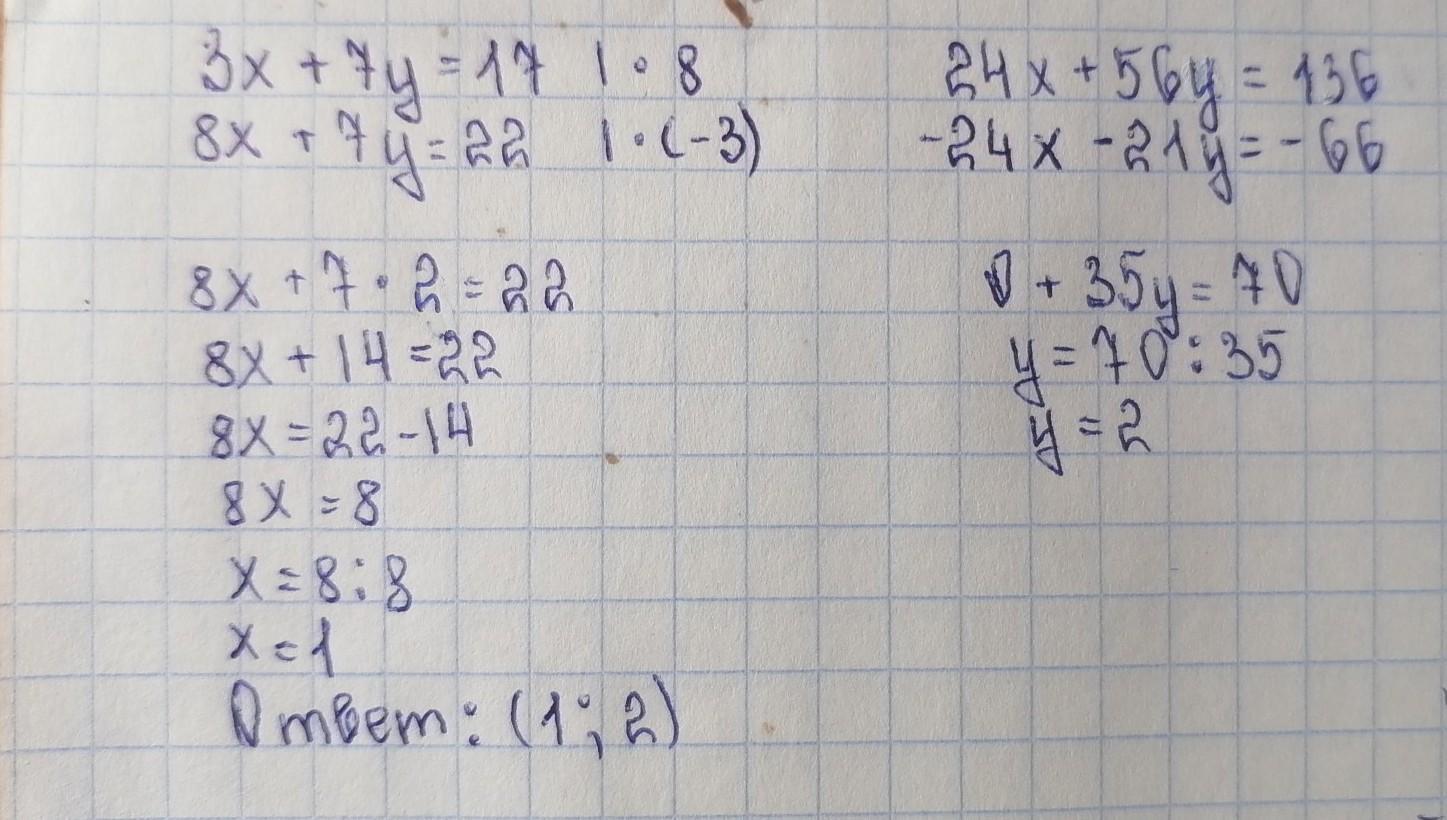 3x + 7y = 17 | · 8
8x + 7y = 22 | · (-3)
24x + 56y = 136
-24x - 21y = - 66
8x + 7 · 2 = 22
8x + 14 = 22
8x = 22 - 14
8x = 8
x = 8 : 8
x = 1
Ответ: (1; 2)
0 + 35y = 70
y = 70 : 35
y = 2